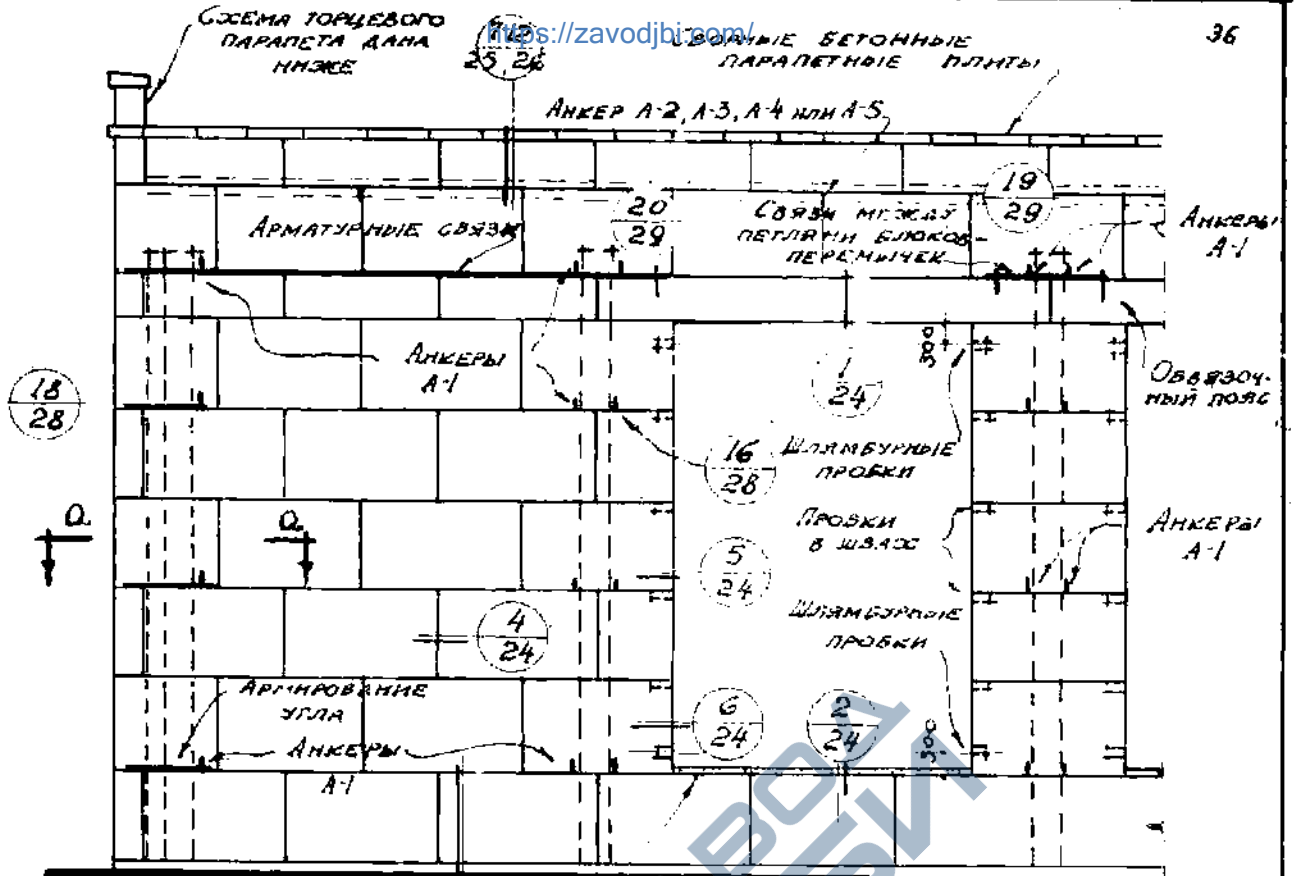 Схема торцевого
парапета дана
ниже
https://zavodjbi.com/
25 26
Сборные бетонные
парапетные плиты
36
Анкер А-2, А-3, А-4 или А-5
19
29
20
29
Арматурные связи
Связи между
петлями блоков-
перемычек
Анкеры
А-1
Анкеры
А-1
300
1
24
18
28
Обвязоч-
ный пояс
16
28
Шлямбурные
пробки
Пробки
в швах
Анкеры
А-1
а
а
5
24
4
24
Шлямбурные
пробки
Армирование
угла
6
24
2
24
300
Анкеры
А-1
ВОД
БИ